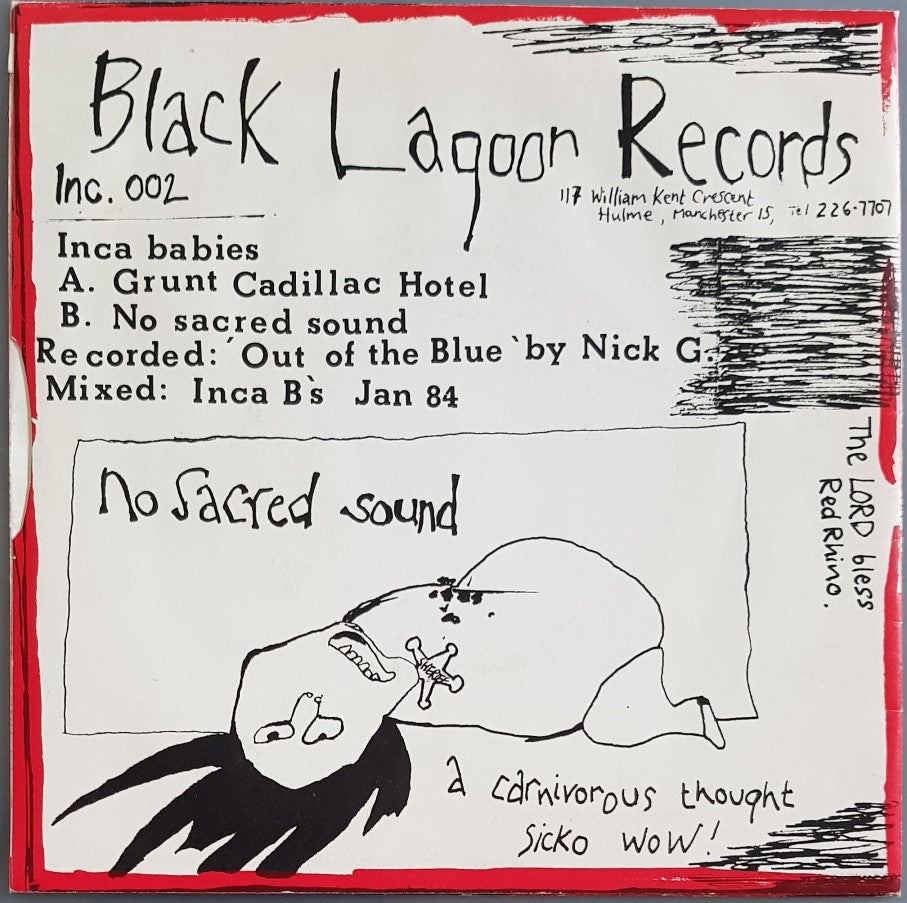 Black Lagoon Records
Inc. 002
117 William Kent Crescent
Hulme, Manchester 15, Tel 226·7707
Inca babies
A. Grunt Cadillac Hotel
B. No sacred sound
Recorded: 'Out of the Blue' by Nick G.
Mixed: Inca B's Jan 84
The LORD bless
Red Rhino.
no Sacred sound
a carnivorous thought
sicko wow!